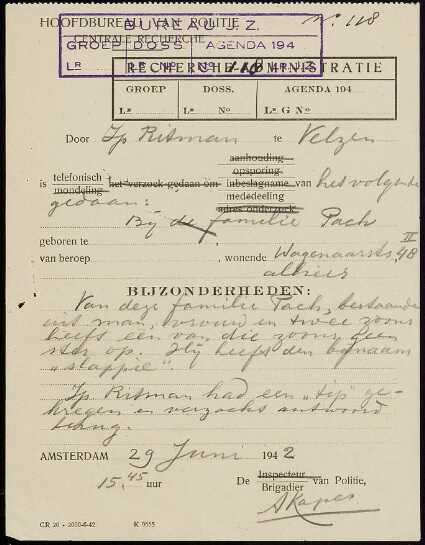 HOOFDBUREAU VAN POLITIE
No. 118
CENTRALE RECHERCHE
BUREAU J. Z.
GROEP DOSS. AGENDA 194
Lr Lr No No Lr J.Z.
RECHERCHE-ADMINISTRATIE
118
GROEP DOSS. AGENDA 194
Lr Lr No Lr G No
Door Ip Ritman te Velzen
aanhouding
opsporing
is telefonisch het verzoek gedaan om inbeslagname van het volgende
mondeling mededeeling
gedaan: adres onderzoek
Bij de familie Pach
geboren te
van beroep , wonende Wagenaarstr. 48 II
alhier
BIJZONDERHEDEN:
Van deze familie Pach, bestaande
uit man, vrouw en twee zoons
heeft een van die zoons geen
ster op. Hij heeft den bijnaam
„slappie”
Ip. Ritman had een „tip” ge-
kregen en verzocht antwoord
terug.
AMSTERDAM 29 Juni 1942
15.45 uur De Inspecteur van Politie,
Brigadier
A Kaper
C.R 20 - 2000-6-42 K 9555